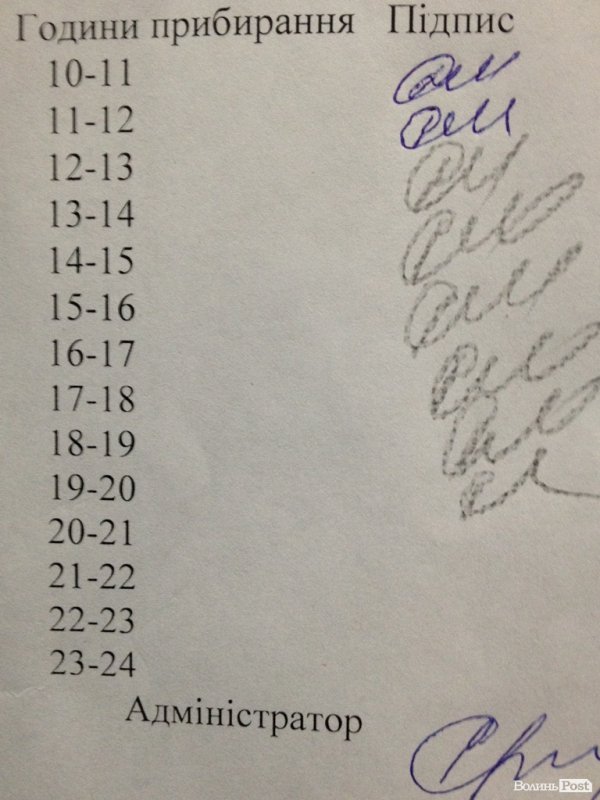 Години прибирання Підпис
10-11
11-12
12-13
13-14
14-15
15-16
16-17
17-18
18-19
19-20
20-21
21-22
22-23
23-24
Адміністратор
ВолиньPost